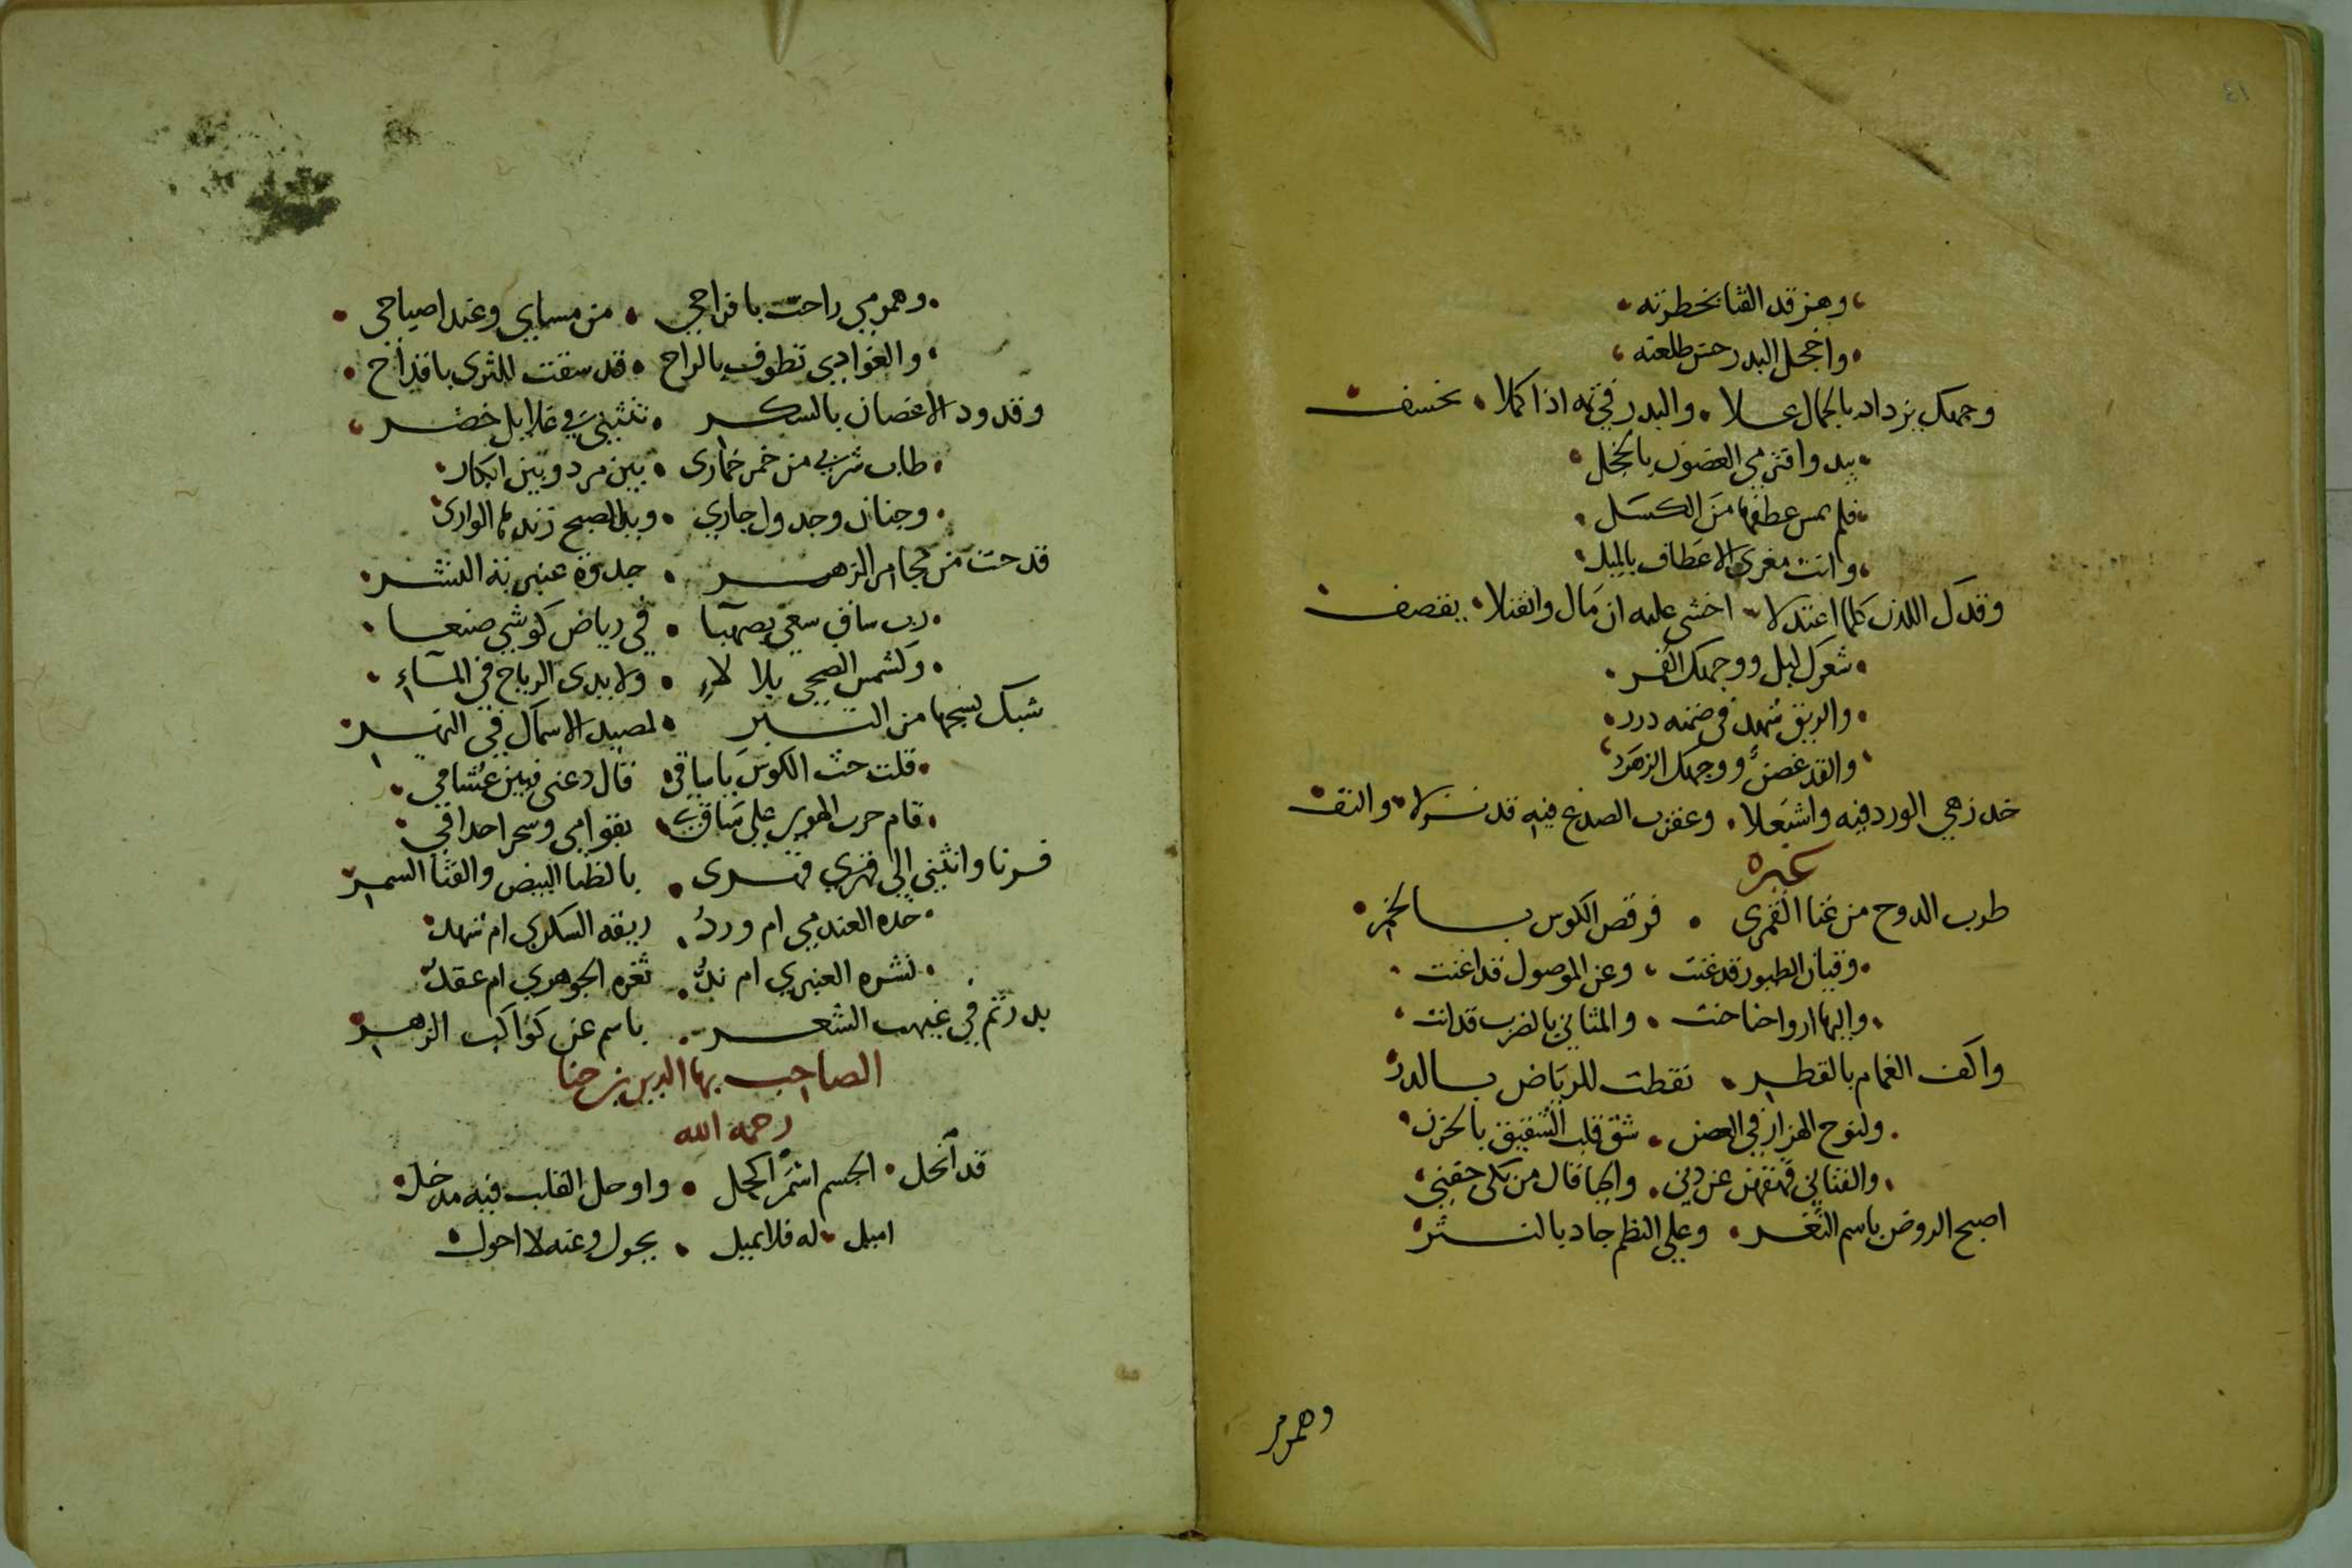 وهز قد القنا بخطرته
واخجل البدر حسن طلعته
وجهك يزداد بالجمال علا والبدر في تمه اذا كملا نخسف
يبدو افتري الغصون بالخجل
فلم يمس عطفها من الكسل
وانت مغري الاعطاف بالميل
وقدك اللدن كلما اعتدلا اخشى عليه ان مال وانفتلا يقصف
شعرك ليل ووجهك القمر
والريق شهد في ضمنه درر
والقد غصن ووجهك الزهر
خد زهي الورد فيه واشتعلا وعقرب الصدغ فيه قد نزلا والتف
غيره
طرب الدوح من غنا القمري فرقص الكوس بالخمر
وقيان الطيور قد غنت وعن الموصول قد اغنت
واليها ارواحنا حنت والمثاني بالضرب قد انت
واكف الغمام بالقطر نقطت للرياض بالدر
ولنوح الهزار في الغصن شق قلب الشقيق بالحزن
والقناني قهقهن عن دني والحيا قال من بكى جفني
اصبح الروض باسم الثغر وعلى النظم جاد بالنثر
وهمومي
وهمومي راحت بافراحي من مساي وعند اصباحي
والغوادي تطوف بالراح قد سقت للثرى باقداح
وقدود الاغصان بالسكر تنثني في غلايل خضر
طاب شربي من خمر خماري بين مرد وبين ابكار
وجنان وجدول جاري ويد الصبح زندها الواري
قدحت من مجامر الزهر جدوة عنبرية النشر
رب ساق سعى بصهبا في رياض كوشي صنعا
وكشمس الضحى بلا لاء ولايدي الرياح في المآء
شبك نسجها من التبر لمصيد الاسماك في النهر
قلت حث الكوس يا ساقي قال دعني فبين عشاقي
قام حرب الهوى على ساق بقوامي وسحر احداقي
فرنا وانثنى الى قهري بالظبا البيض والقنا السمر
خده العندمي ام ورد ريقه السكري ام شهد
نشره العنبري ام ند ثغره الجوهري ام عقد
بدر تم في غيهب الشعر باسم عن كواكب الزهر
الصاحب بها الدين بن حنا
رحمه الله
قد انحل الجسم اسمر اكحل واوحل القلب فيه مدخل
اميل له فلا يميل يحول وعنه لا احول